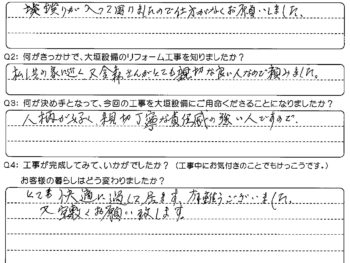 壊れりが入って困りましたので仕方がなくお願いしました。
Q2: 何がきっかけで、大垣設備のリフォーム工事を知りましたか？
私し宅の家に近く又金森さんがとても親切な良い人なので頼みました。
Q3: 何が決め手となって、今回の工事を大垣設備にご用命くださることになりましたか？
人柄が好く親切丁寧な責任感の強い人ですので。
Q4: 工事が完成してみて、いかがでしたか？（工事中にお気付きのことでもけっこうです。）
お客様の暮らしはどう変わりましたか？
とても快適に過して居ます。有難うございました。
又宜敷くお願い致します。